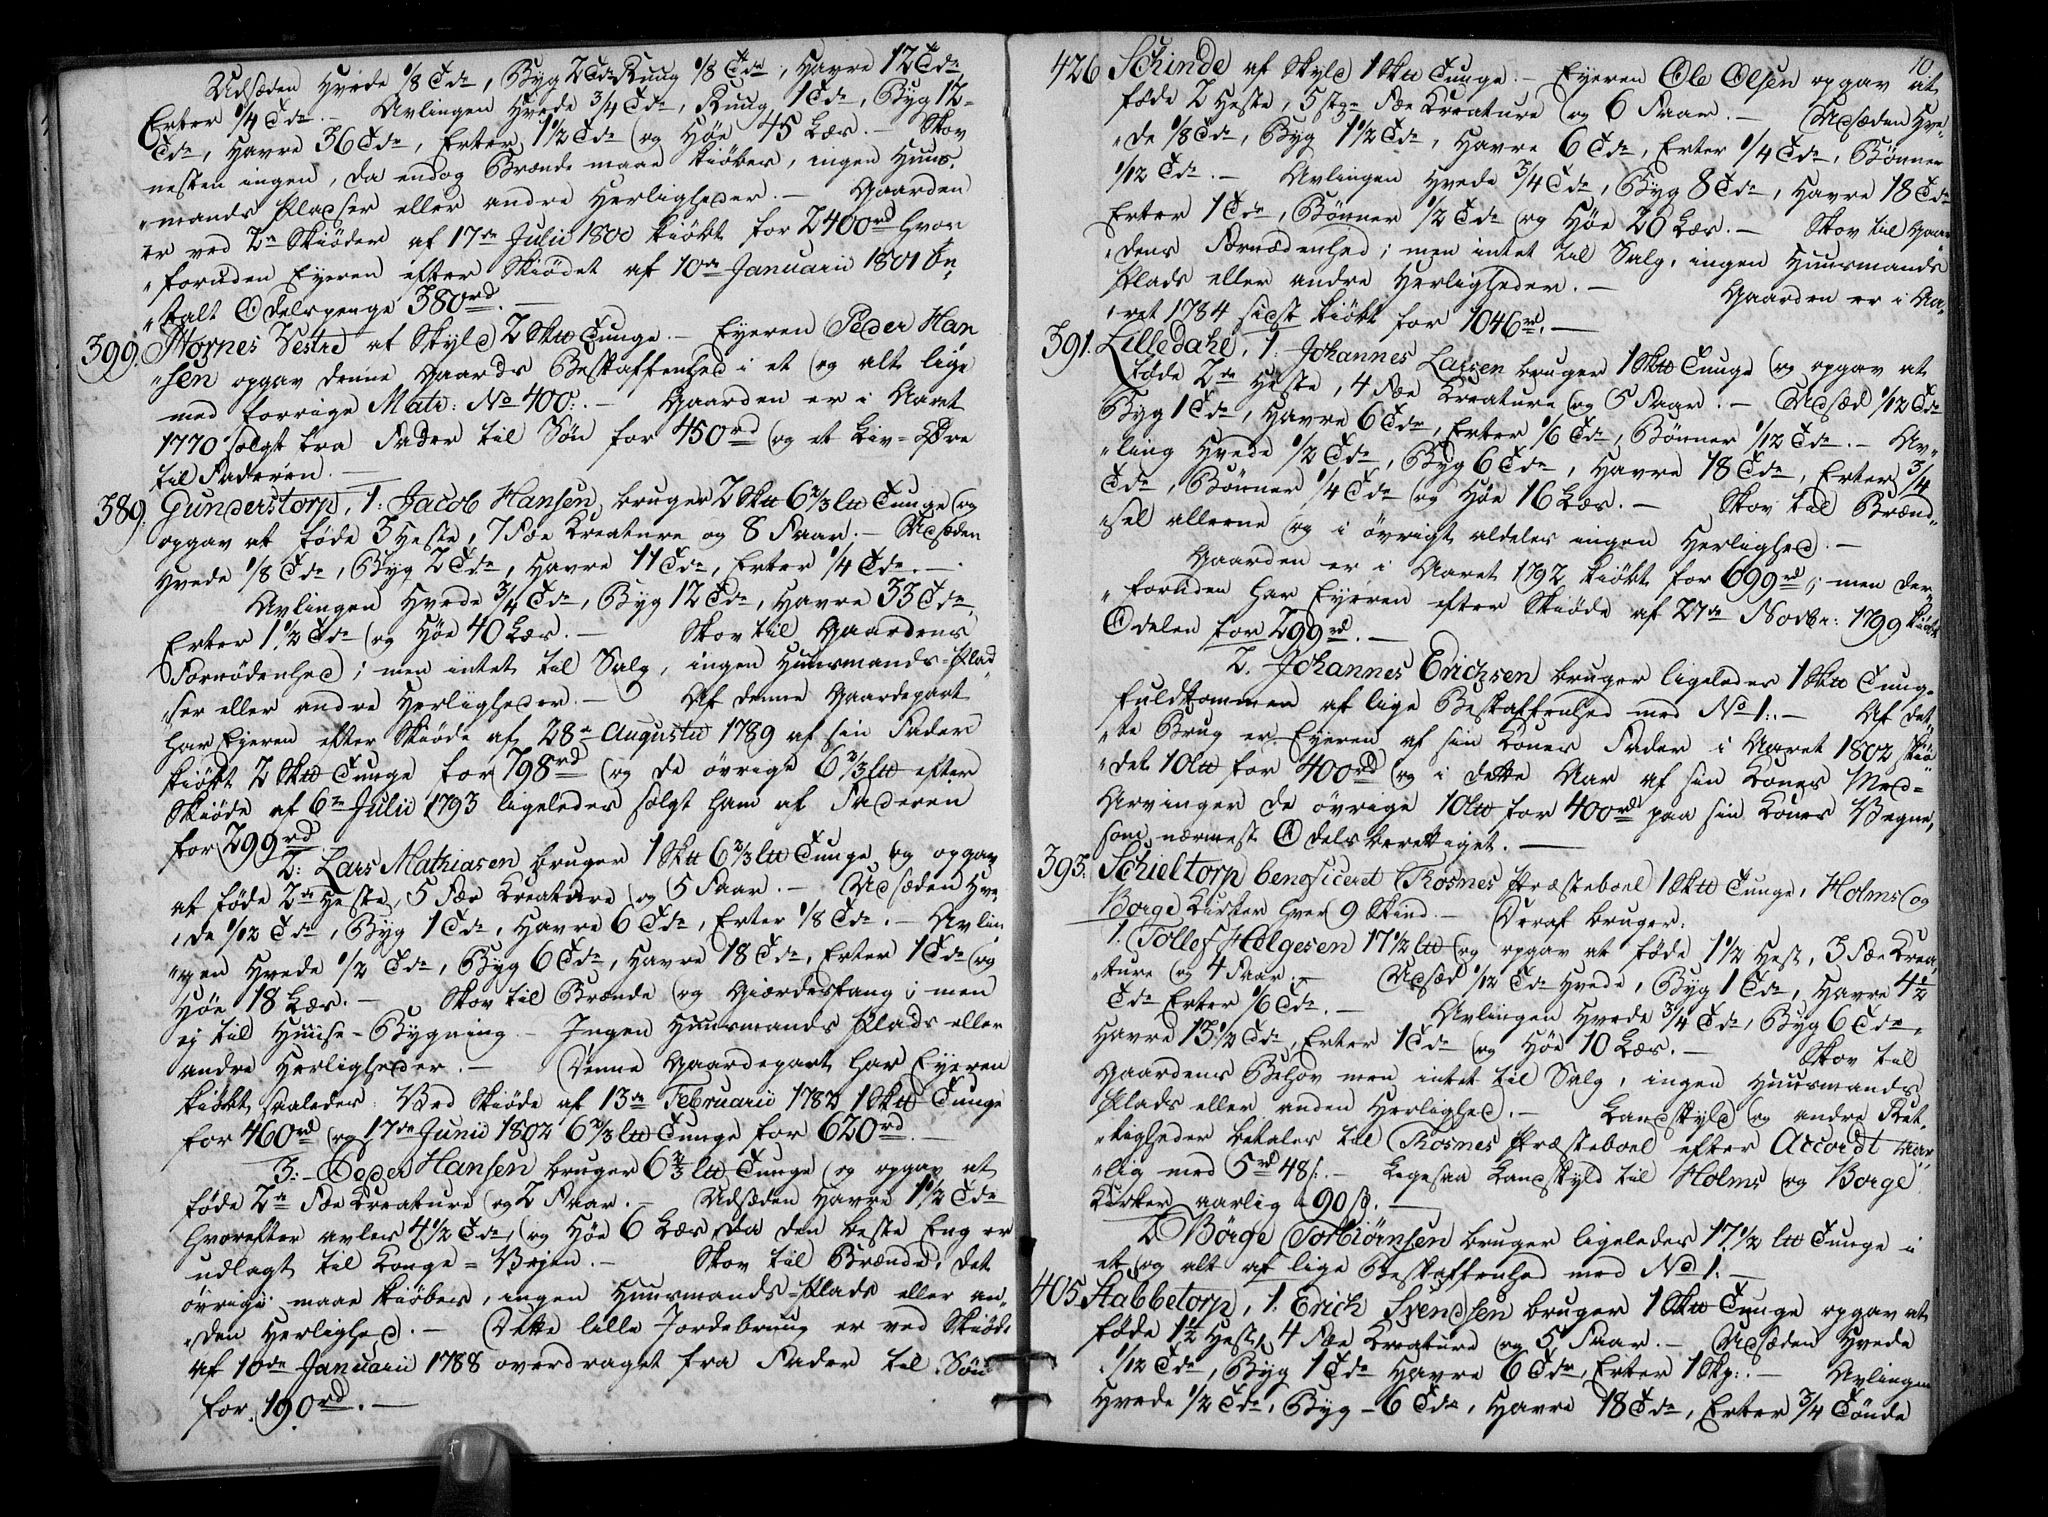 Udsæden Hvede 1/8 Tde, Byg 2 Tde Rung 1/8 Tde, Havre 12 Tde
Erter 1/4 Tde. — Avlingen Hvede 3/4 Tde, Rung 1 Tde, Byg 12
Tde, Havre 36 Tde, Erter 1 1/2 Tde og Høe 45 Læs. — Skov
nesten ingen, da endog Brænde maae kiøbes, ingen Huus-
„mands Pladser eller andre Herligheder. — Gaarden
er ved 2de Skiøder af 17de Julii 1800 kiøbt for 2400rd hvor
„foruden Eyeren efter Skiødet af 10de Januarii 1801 be
„talt Odelspenge 380rd. —
399. Hornes Vestre af Skyld 2 Skt Tunge. — Eyeren Peder Han
„sen opgav denne Gaards Beskaffenhed i et og alt lige
med forrige Matr: No 400. — Gaarden er i Aaret
1770 solgt fra Fader til Søn for 450rd og et Liv-Øre
til Faderen. —
389. Gunderstorp, 1. Jacob Hansen, bruger 2 Skt 6 2/3 lb Tunge og
opgav at føde 3 Heste, 7 Fæe Creature og 8 Faar. — Udsæden
Hvede 1/8 Tde, Byg 2 Tde, Havre 11 Tde, Erter 1/4 Tde. —
Avlingen Hvede 3/4 Tde, Byg 12 Tde, Havre 33 Tde
Erter 1 1/2 Tde og Høe 40 Læs. — Skov til Gaardens
Fornødenhed; men intet til Salg, ingen Huusmands-Plad
„ser eller andre Herligheder. — Af denne Gaardepart
har Eyeren efter Skiøde af 28de Augustii 1789 af sin Fader
kiøbt 2 Skt Tunge for 798rd og de øvrige 6 2/3 lb efter
Skiøde af 6te Julii 1793 ligeledes solgt ham af Faderen
for 299rd.
2: Lars Mathiasen bruger 1 Skt 6 2/3 lb Tunge og opgav
at føde 2de Heste, 5 Fæe Creature og 5 Faar. — Udsæden Hve
„de 1/12 Tde, Byg 1 Tde, Havre 6 Tde, Erter 1/8 Tde. — Avlin
„gen Hvede 1/2 Tde, Byg 6 Tde, Havre 18 Tde, Erter 1 Tde og
Høe 18 Læs. — Skov til Brænde og Giærdesfang; men
ej til Huuse-Bygning — Ingen Huusmands Plads eller
andre Herligheder. — Denne Gaardepart har Eyeren
kiøbt saaledes: Ved Skiøde af 13de Februarii 1782 1 Skt Tunge
for 460rd og 17de Junii 1802 6 2/3 lb Tunge for 620rd. —
3: Peder Hansen bruger 6 2/3 lb Tunge og opgav at
føde 2de Fæe Creature og 2 Faar. — Udsæden Havre 1 1/2 Tde
hvorefter avles 4 1/2 Tde, og Høe 6 Læs, da den beste Eng er
udlagt til Konge-Vejen. — Skov til Brænde, det
øvrige maae kiøbes, ingen Huusmands-Plads eller an-
„den Herlighed. — Dette lille Jordebruug er ved Skiøde
af 10de Januarii 1788 overdraget fra Fader til Søn
for 190rd. —
10.
426 Schinde af Skyld 1 Skt Tunge. — Eyeren Ole Olsen opgav at
føde 2 Heste, 5 stk Fæe Creature og 6 Faar. — Udsæden Hve-
„de 1/8 Tde, Byg 1 1/2 Tde, Havre 6 Tde, Erter 1/4 Tde, Bønner
1/12 Tde. — Avlingen Hvede 3/4 Tde, Byg 8 Tde, Havre 18 Tde
Erter 1 Tde, Bønner 1/2 Tde og Høe 20 Læs. — Skov til Gaar
„dens Fornødenhed; men intet til Salg, ingen Huusmands
Plads eller andre Herligheder. — Gaarden er i Aa-
„ret 1784 sidst kiøbt for 1046rd. —
391. Lilledahl, 1. Johannes Larsen bruger 1 Skt Tunge og opgav at
føde 2de Heste, 4 Fæe Creature og 5 Faar. — Udsæd 1/12 Tde
Byg 1 Tde, Havre 6 Tde, Erter 1/6 Tde, Bønner 1/12 Tde. — Av-
„ling Hvede 1/2 Tde, Byg 6 Tde, Havre 18 Tde, Erter 3/4
Tde, Bønner 1/4 Tde og Høe 16 Læs. — Skov til Brænd-
„sel allerne og i øvrigt aldeles ingen Herlighed. —
Gaarden er i Aaret 1792 kiøbt for 699rd; men der-
„foruden har Eyeren efter Skiøde af 27de Novbr: 1799 kiøbt
Odelen for 299rd. —
2. Johannes Erichsen bruger ligeledes 1 Skt Tunge
fuldkommen af lige Beskaffenhed med No 1. — Af det
„te Brug er Eyeren af sin Kones Fader i Aaret 1802 skiø
„det 10 lb for 400rd og i dette Aar af sin Kones Med-
Arvinger de øvrige 10 lb for 400rd paa sin Kones Vegne,
som nærmest Odelsberettiget. —
393. Schieltorp beneficeret Rosnes Præsteboel 1 Skt Tunge, Holms og
Borge Kirker hver 9 Skind. — Deraf bruger:
1. Tollef Helgesen 17 1/2 lb og opgav at føde 1 1/2 Hest, 3 Fæe Crea
„ture og 4 Faar. — Udsæd 1/12 Tde Hvede, Byg 1 Tde, Havre 4 1/2
Tde Erter 1/6 Tde. — Avlingen Hvede 3/4 Tde, Byg 6 Tde,
Havre 13 1/2 Tde, Erter 1 Tde og Høe 10 Læs. — Skov til
Gaardens Behov men intet til Salg, ingen Huusmands
Plads eller anden Herlighed. — Landskyld og andre Ret-
„tigheder betales til Rosnes Præsteboel efter Accordt aar
„lig med 5rd 48/. — Ligesaa Landskyld til Holms og Borge
Kirker aarlig 90 s. —
2 Børge Torbiørnsen bruger ligeledes 17 1/2 lb Tunge i
et og alt af lige Beskaffenhed med No 1. —
405. Stabbetorp, 1. Erich Svendsen bruger 1 Skt Tunge opgav at
føde 1 1/2 Hest, 4 Fæe Creature og 5 Faar. — Udsæden Hvede
1/12 Tde, Byg 1 Tde Havre 6 Tde, Erter 1 Skp. — Avlingen
Hvede 1/2 Tde, Byg - 6 Tde, Havre 18 Tde, Erter 3/4 Tønde